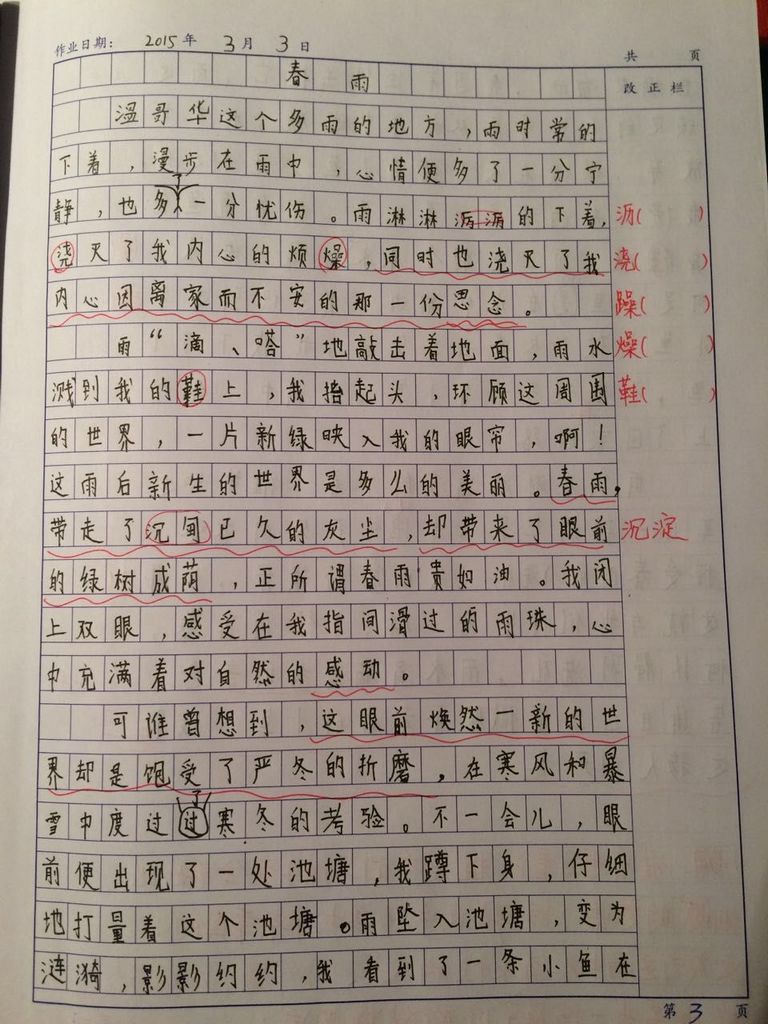 作业日期： 2015 年 3 月 3 日
共 页
春雨
改正栏
温哥华这个多雨的地方，雨时常的
下着，漫步在雨中，心情便多了一分宁
了
静，也多一分忧伤。雨淋淋沥沥的下着， 沥( )
浇灭了我内心的烦燥，同时也浇灭了我 浇( )
内心因离家而不安的那一份思念。 躁( )
雨“滴、嗒”地敲击着地面，雨水 燥( )
溅到我的鞋上，我抬起头，环顾这周围 鞋( )
的世界，一片新绿映入我的眼帘，啊！
这雨后新生的世界是多么的美丽。春雨，
带走了沉甸已久的灰尘，却带来了眼前 沉淀
的绿树成荫，正所谓春雨贵如油。我闭
上双眼，感受在我指间滑过的雨珠，心
中充满着对自然的感动。
可谁曾想到，这眼前焕然一新的世
界却是饱受了严冬的折磨，在寒风和暴
了
雪中度过过寒冬的考验。不一会儿，眼
前便出现了一处池塘，我蹲下身，仔细
地打量着这个池塘。雨坠入池塘，变为
涟漪，影影约约，我看到了一条小鱼在
第 3 页